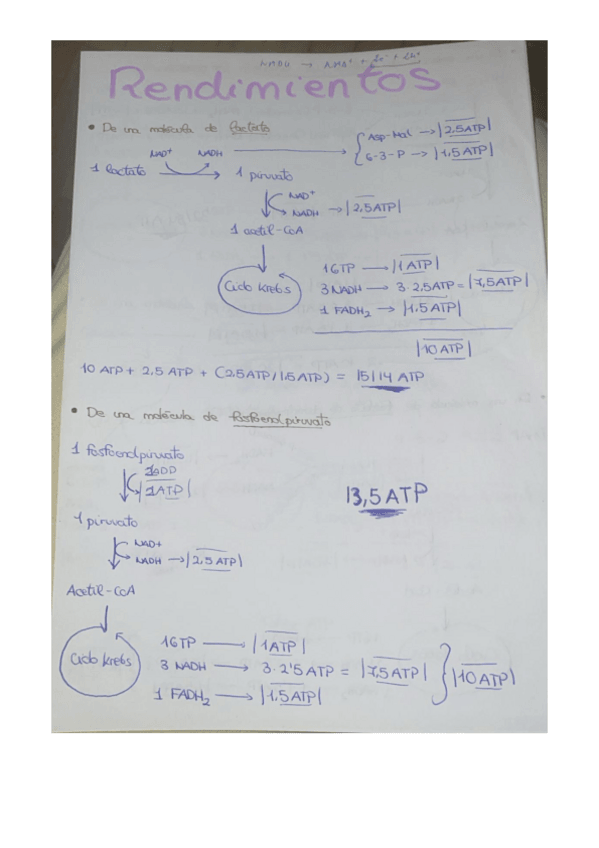 NADH → NAD⁺ + 2e⁻ + 2H⁺
Rendimientos
• De una molécula de lactato
Asp-Mal → |2,5ATP|
G-3-P → |1,5 ATP|
NAD⁺ NADH
1 lactato 1 piruvato
NAD⁺
NADH → |2,5ATP|
1 acetil-CoA
Ciclo Krebs
1GTP → |1 ATP|
3 NADH → 3·2,5ATP = |7,5ATP|
1 FADH₂ → |1,5ATP|
|10 ATP|
10 ATP + 2,5 ATP + (2,5ATP/1,5ATP) = 15/14 ATP
• De una molécula de fosfoenolpiruvato
1 fosfoenolpiruvato
|1ATP|
13,5 ATP
1 piruvato
NAD+
NADH → |2,5ATP|
Acetil-CoA
Ciclo Krebs
1GTP → |1ATP|
3 NADH → 3·2'5 ATP = |7,5 ATP|
|10 ATP|
1 FADH₂ → |1,5ATP|